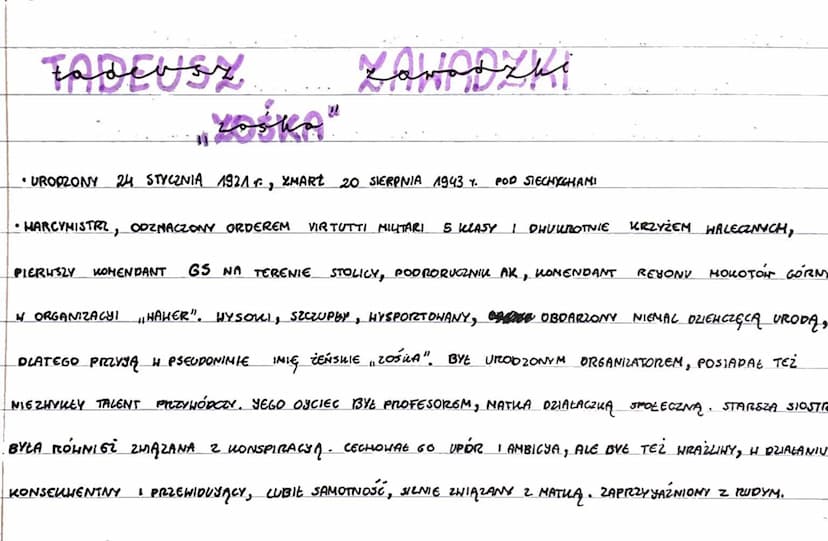 TADEUSZ ZAWADZKI
„ZOŚKA”
• URODZONY 24 STYCZNIA 1921 r., ZMARŁ 20 SIERPNIA 1943 r. POD SIECHYCHAMI
• HARCMISTRZ, ODZNACZONY ORDEREM VIRTUTTI MILITARI 5 KLASY I DWUKROTNIE KRZYŻEM WALECZNYCH,
PIERWSZY KOMENDANT GS NA TERENIE STOLICY, PODPORUCZNIK AK, KOMENDANT REJONU MOKOTÓW GÓRNY
W ORGANIZACJI „WAWER”. WYSOKI, SZCZUPŁY, WYSPORTOWANY, OBDARZONY NIEMAL DZIEWCZĘCĄ URODĄ,
DLATEGO PRZYJĄ W PSEUDONIMIE IMIĘ ŻEŃSKIE „ZOŚKA”. BYŁ URODZONYM ORGANIZATOREM, POSIADAŁ TEŻ
NIEZWYKŁY TALENT PRZYWÓDCZY. JEGO OJCIEC BYŁ PROFESOREM, MATKA DZIAŁACZKĄ SPOŁECZNĄ. STARSZA SIOSTRA
BYŁA RÓWNIEŻ ZWIĄZANA Z KONSPIRACJĄ. CECHOWAŁ GO UPÓR I AMBICJA, ALE BYŁ TEŻ WRAŻLIWY, W DZIAŁANIU
KONSEKWENTNY I PRZEWIDUJĄCY, LUBIŁ SAMOTNOŚĆ, SILNIE ZWIĄZANY Z MATKĄ. ZAPRZYJAŹNIONY Z RUDYM.